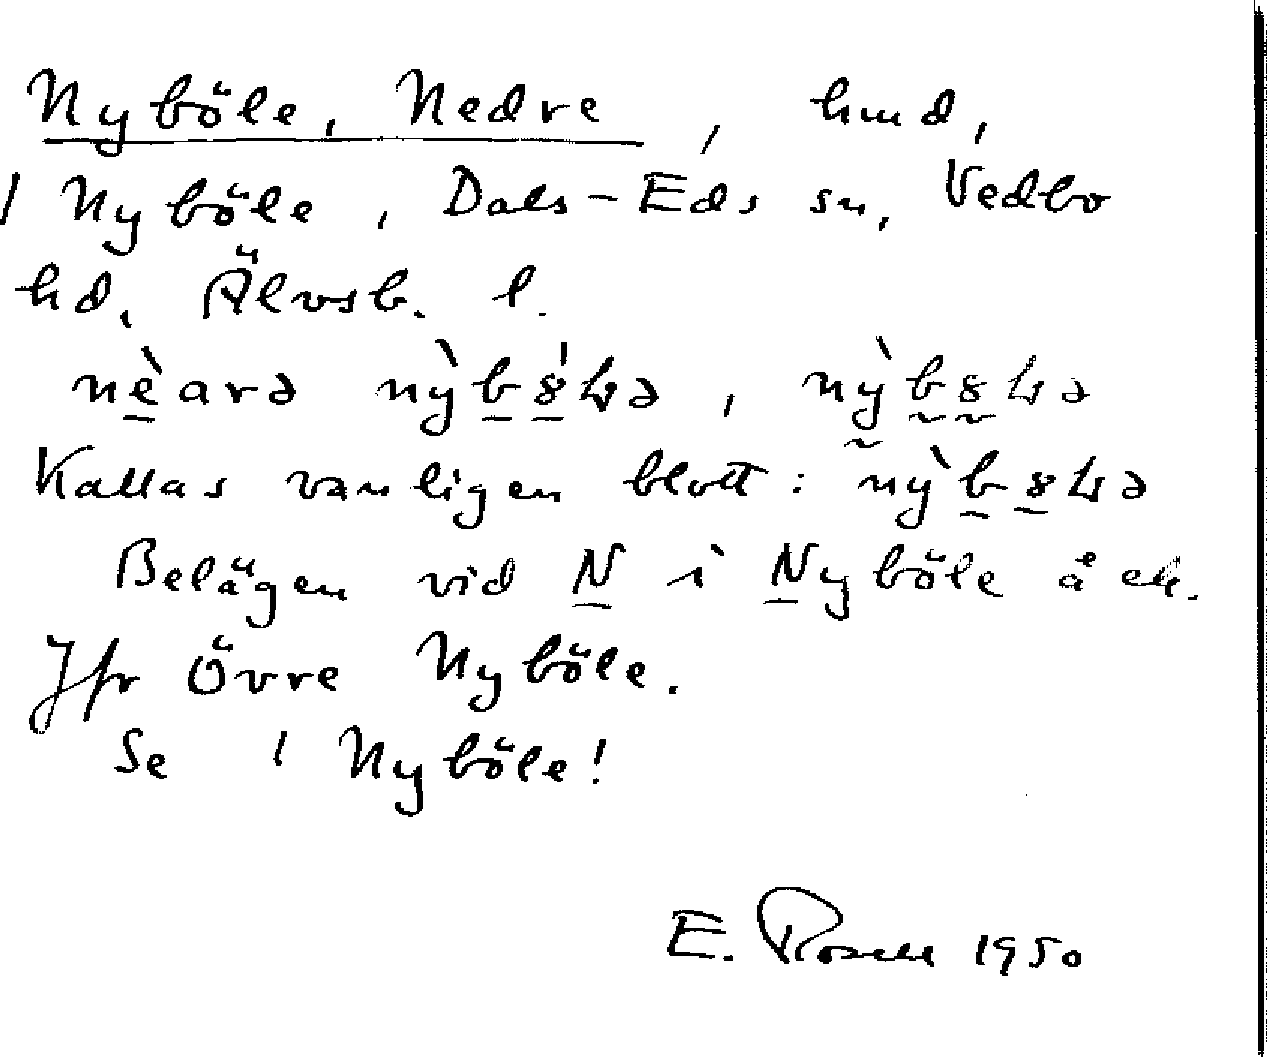 Nyböle, Nedre, hmd,
1 Nyböle, Dals-Eds sn, Vedbo
hd, Älvsb. l.
nèarə nỳb8́ɬə, nỳb8ɬə
Kallas vanligen blott: nỳb8ɬə
Belägen vid N i Nyböle å ek.
Jfr Övre Nyböle.
Se 1 Nyböle!
E. Rosell 1950